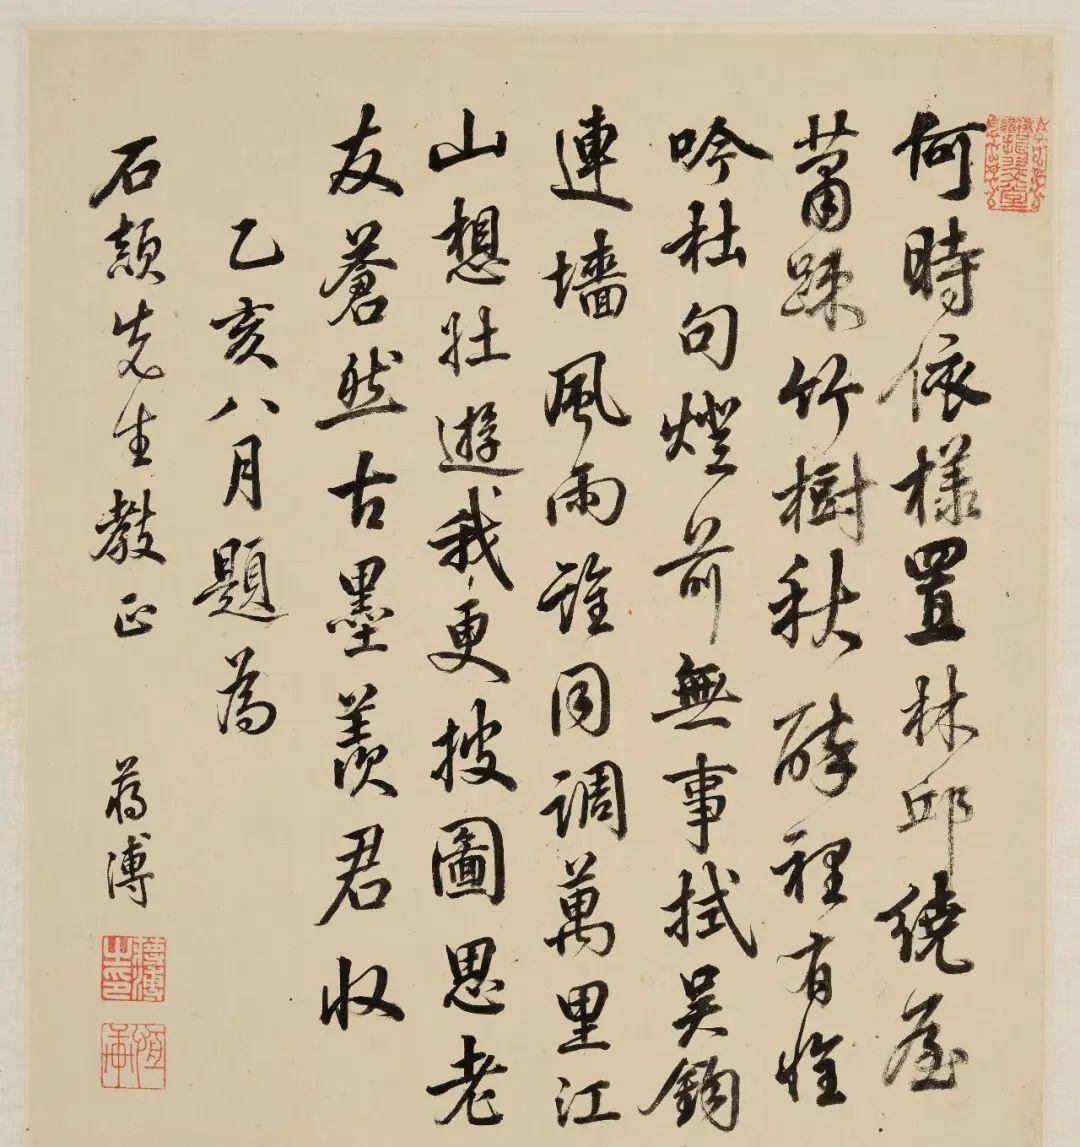 何時依樣置林邱繞屋
蕭疎竹樹秋醉裡有懷
吟杜句燈前無事拭吴鉤
連墻風雨誰同調萬里江
山想壯遊我更披圖思老
友蒼然古墨羨君收
乙亥八月題為
石先生教正 蔣溥
蔣溥之印